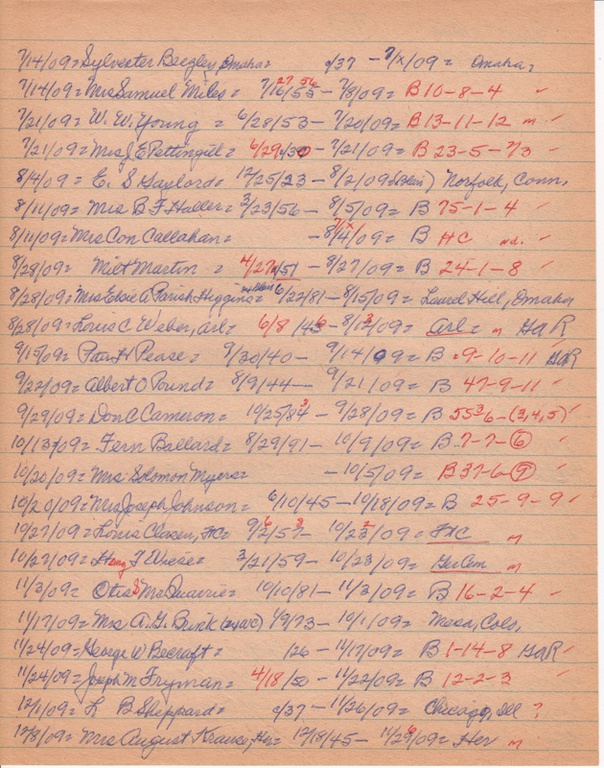 7/14/09= Sylvester Beezley, Omaha= c/37 - 7/x/09= Omaha?
7/14/09= Mrs Samuel Miles= 7/16/53 27 56 - 7/8/09= B 10-8-4 ✓
7/21/09= W. W. Young = 6/28/53 - 7/20/09= B 13-11-12 m. ✓
7/21/09= Mrs J E Pettingill= 6/29/30 - 7/21/09= B 23-5-7/3 ✓
8/4/09= E. S Gaylord= 12/25/23 - 8/2/09 (Blair) Norfolk, Conn.
8/11/09= Mrs B F Haller= 3/23/56 - 8/5/09= B 75-1-4 ✓
8/11/09= Mrs Con Callahan= - 8/4/09= B HC nd. ✓
8/28/09= Milt Martin = 4/27/51 - 8/27/09= B 24-1-8 ✓
8/28/09= Mrs Elsie A Parish Higgins= 6/22/81 - 8/15/09= Laurel Hill, Omaha
8/28/09= Louis C Weber, Arl= 6/8/43 6 - 8/13/09= Arl= m GAR
9/15/09= Pease= 9/30/40 - 9/14/09= B =9-10-11 GAR
9/22/09= Albert O Pound= 8/9/44 - 9/21/09= B 47-9-11 ✓
9/29/09= Don C Cameron= 10/25/84 3 - 9/28/09= B 55 3 6-(3,4,5) ✓
10/13/09= Fern Ballard= 8/29/91 - 10/9/09= B 7-7-6 ✓
10/20/09= Mrs Solomon Myers= - 10/5/09= B 37-6-9 ✓
10/20/09= Mrs Joseph Johnson= 6/10/45 - 10/18/09= B 25-9-9 ✓
10/27/09= Louis Clasen, FtC= 9/2/57 6 3 - 10/23/09 2 = FtC m
10/27/09= Henry T Wiese= 3/21/59 - 10/23/09= GerCem m
11/3/09= Otis S McQuarrie= 10/10/81 - 11/3/09= B 16-2-4 ✓
11/17/09= Mrs A. G. Brink 1/9/73 - 10/1/09= Mesa, Colo,
11/24/09= George W Becraft= /26 - 11/17/09= B 1-14-8 GAR ✓
11/24/09= Joseph M Fryman= 4/18/50 - 11/22/09= B 12-2-3 ✓
12/1/09= L B Sheppard= c/37 - 11/26/09= Chicago, Ill ?
12/8/09= Mrs August Krause, Her= 12/18/45 - 11/29/09 6 = Her m